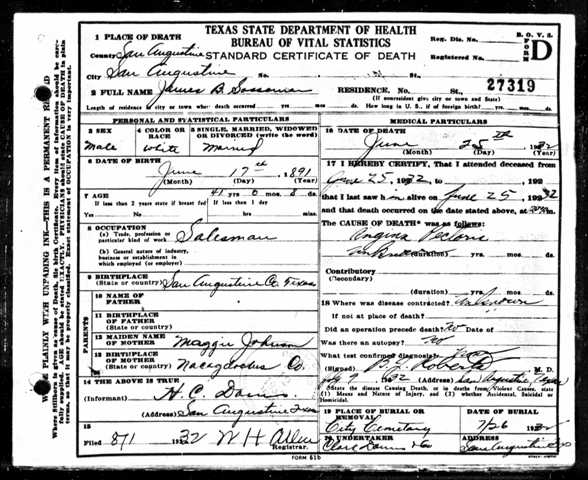 TEXAS STATE DEPARTMENT OF HEALTH
BUREAU OF VITAL STATISTICS
STANDARD CERTIFICATE OF DEATH
B. O. V. S.
FORM D
Reg. Dis. No.
Registered No.
27319
WRITE PLAINLY WITH UNFADING INK—THIS IS A PERMANENT RECORD
1 PLACE OF DEATH
County San Augustine
City San Augustine No. St.
2 FULL NAME James B. Sossaman RESIDENCE, No. St.,
(If nonresident give city or town and State)
Length of residence of city or town where death occurred yrs. mos. ds. How long in U. S., if of foreign birth? yrs. mos. ds.
PERSONAL AND STATISTICAL PARTICULARS
3 SEX
Male
4 COLOR OR RACE
White
5 SINGLE, MARRIED, WIDOWED OR DIVORCED (write the word)
Married
6 DATE OF BIRTH
June 17th 1891
(Month) (Day) (Year)
7 AGE 41 yrs 0 mos 8 ds.
If less than 2 years state if breast fed If less than 1 day
Yes No hrs. min.
8 OCCUPATION
(a) Trade, profession or particular kind of work Salesman
(b) General nature of industry, business or establishment in which employed (or employer)
9 BIRTHPLACE
(State or country) San Augustine Co. Texas
PARENTS
10 NAME OF FATHER
11 BIRTHPLACE OF FATHER
(State or country)
12 MAIDEN NAME OF MOTHER Maggie Johnson
13 BIRTHPLACE OF MOTHER
(State or country) Nacogdoches Co.
14 THE ABOVE IS TRUE
(Informant) H. C. Davis
(Address) San Augustine Texas
15
Filed 8/1 1932 W H Allen
Registrar.
MEDICAL PARTICULARS
16 DATE OF DEATH
June 25th 1932
(Month) (Day) (Year)
17 I HEREBY CERTIFY, That I attended deceased
from June 25, 1932 to 192
that I last saw h alive on June 25 1932
and that death occurred on the date stated above, at m.
The CAUSE OF DEATH* was as follows:
Angina Pectoris
(duration) yrs. mos. ds.
Contributory
(Secondary)
(duration) yrs. mos. ds.
18 Where was disease contracted? Unknown
if not at place of death?
Did an operation precede death? No Date of
Was there an autopsy? No
What test confirmed diagnosis?
(Signed) Roberts M. D.
July 9 1932 (Address) San Augustine, Texas
State the disease Causing Death, or in deaths from Violent Causes, state (1) Means and Nature of Injury, and (2) whether Accidental, Suicidal or Homicidal.
19 PLACE OF BURIAL OR REMOVAL
City Cemetary
DATE OF BURIAL
7/26 1932
20 UNDERTAKER
Clark Downs Co
ADDRESS
San Augustine Tex
FORM 61b